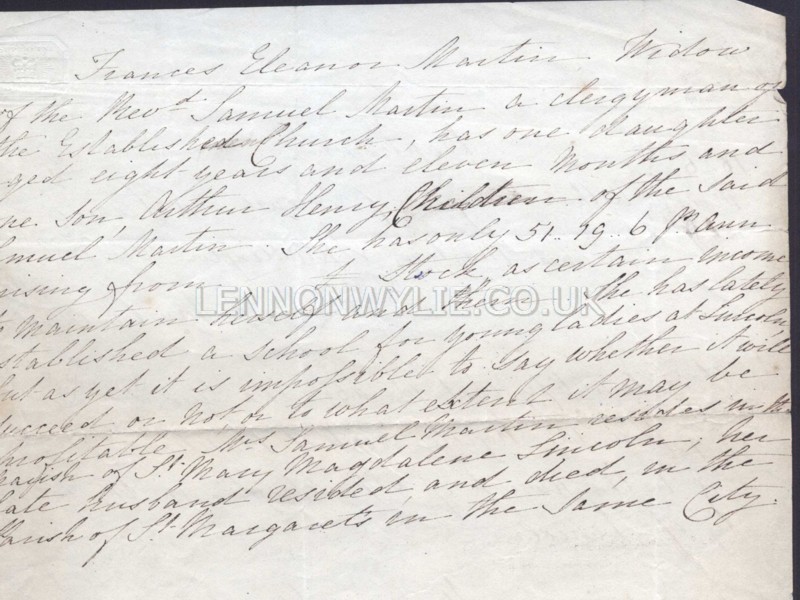 Frances Eleanor Martin Widow
of the Revd Samuel Martin a clergyman of
the Established Church, has one daughter
ged eight years and eleven Months and
ne son, Arthur Henry, Children of the said
amuel Martin. She has only 51..19..6 pr Ann
rising from Stock, as certain income
to maintain herself and them. She has lately
established a school for young ladies at Lincoln
but as yet it is impossible to say whether it will
succeed or not, or to what extent it may be
profitable. Mrs Samuel Martin resides in the
Parish of St Mary Magdalene Lincoln; her
late husband resided and died, in the
Parish of St Margarets in the Same City.
LENNONWYLIE.CO.UK